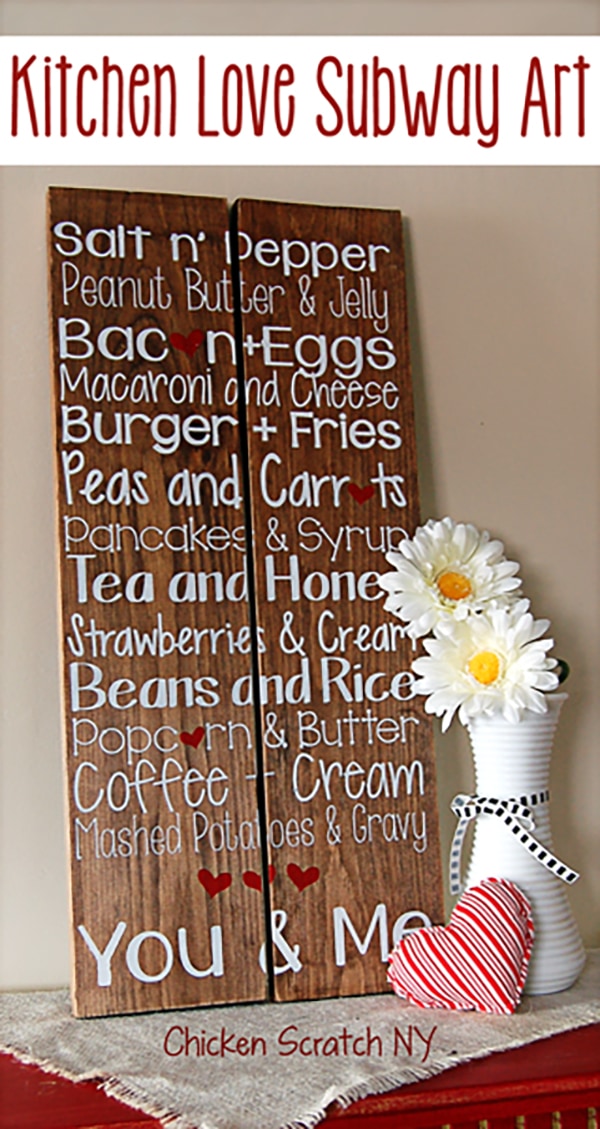 Kitchen Love Subway Art
Salt n' Pepper
Peanut Butter & Jelly
Bac♥n+Eggs
Macaroni and Cheese
Burger + Fries
Peas and Carr♥ts
Pancakes & Syrup
Tea and Hone
Strawberries & Cream
Beans and Rice
Popc♥rn & Butter
Coffee + Cream
Mashed Potatoes & Gravy
♥♥♥
You & Me
Chicken Scratch NY